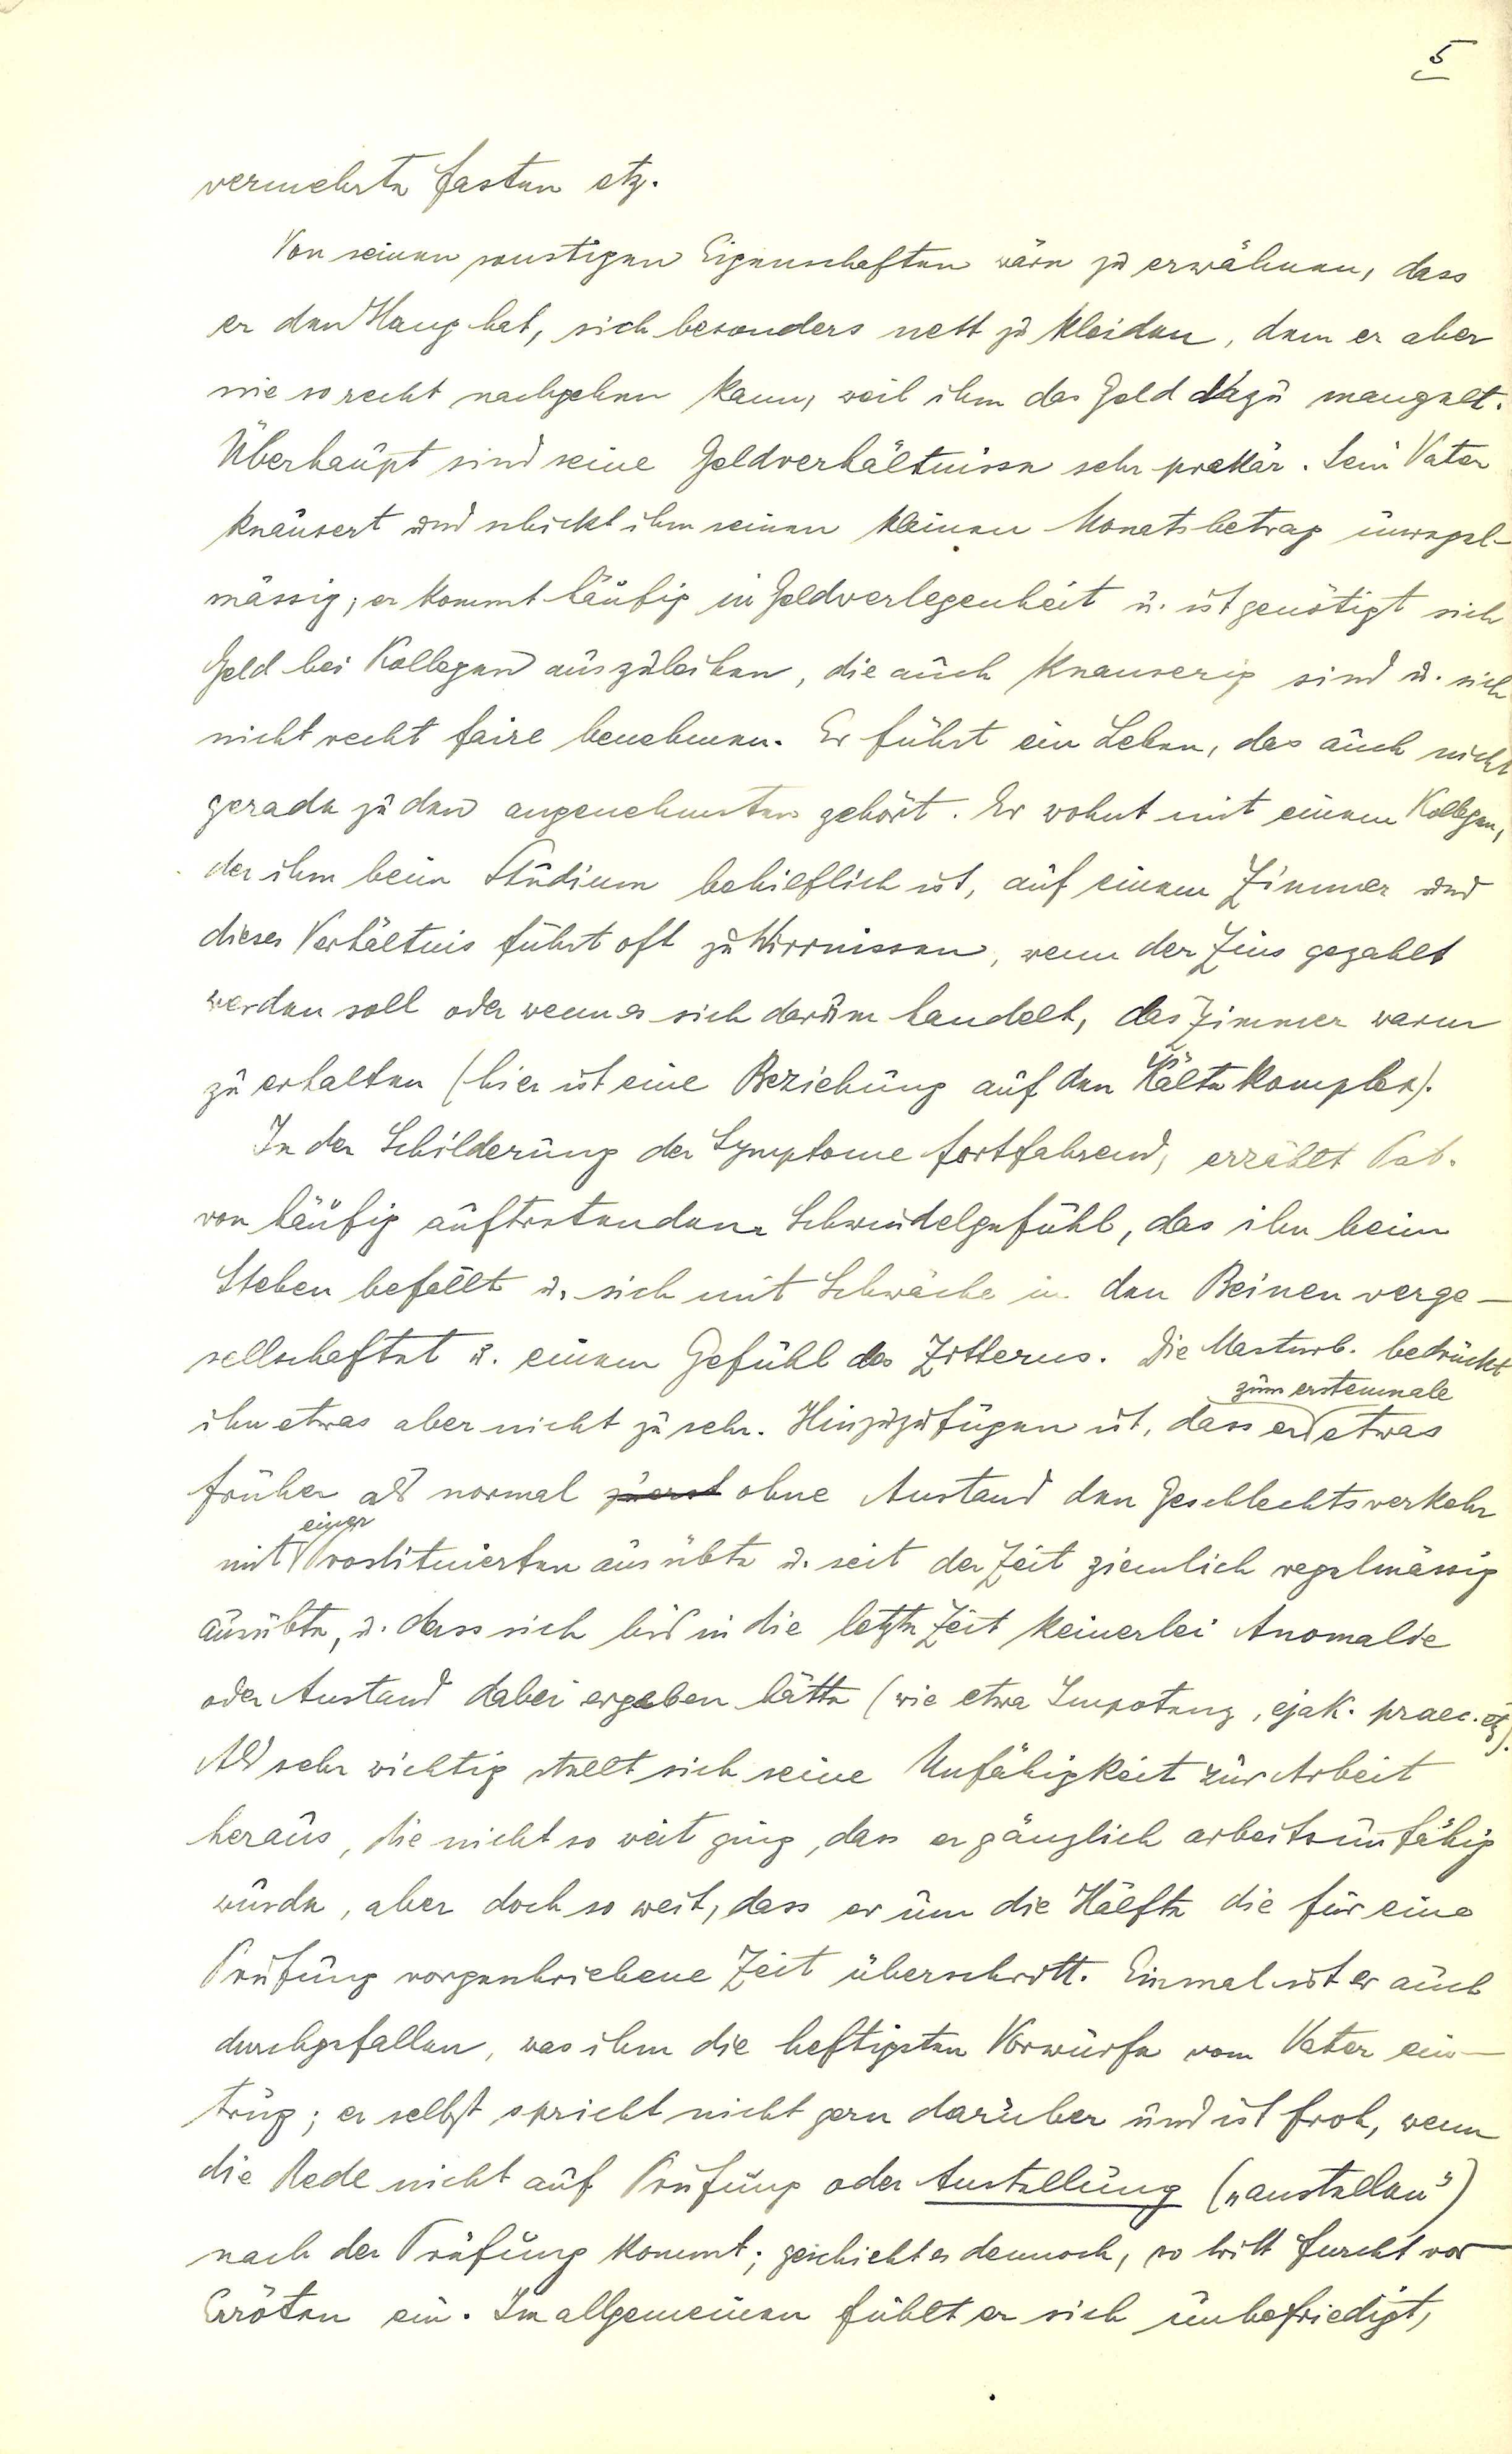 5
vermehrte fasten etz.
Von seinen sonstigen Eigenschaften wäre zu erwähnen, dass
er den Hang hat, sich besonders nett zu kleiden, dem er aber
nie so recht nachgehen kann, weil ihm das Geld dazu mangelt.
Überhaupt sind seine Geldverhältnisse sehr prekär. Sein Vater
knausert und schickt ihm seinen kleinen Monatsbetrag unregel-
mässig; er kommt häufig in Geldverlegenheit u. ist genötigt sich
Geld bei Kollegen auszuleihen, die auch knauserig sind u. sich
nicht recht faire benehmen. Er führt ein Leben, das auch nicht
gerade zu den angenehmsten gehört. Er wohnt mit einem Kollegen,
der ihm beim Studium behilflich ist, auf einem Zimmer und
dieses Verhältnis führt oft zu Wirrnissen, wenn der Zins gezahlt
werden soll oder wenn es sich darum handelt, das Zimmer warm
zu erhalten (hier ist eine Beziehung auf den Kältekomplex).
In der Schilderung der Symptome fortfahrend, erzählt Pat.
von häufig auftretenden Schwindelgefühl, das ihn beim
Stehen befällt u. sich mit Schwäche in den Beinen verge-
sellschaftet u. einem Gefühl des Zitterns. Die Masturb. bedrückt
zum erstenmale
ihn etwas aber nicht zu sehr. Hinzuzufügen ist, dass er etwas
früher als normal zuerst ohne Anstand den Geschlechtsverkehr
einer
mit Prostituierten ausübte u. seit der Zeit ziemlich regelmässig
ausübte, u. dass sich bis in die letzte Zeit keinerlei Anomalie
oder Anstand dabei ergeben hätte (wie etwa Impotenz, ejak. praec. etz).
Als sehr wichtig stellt sich seine Unfähigkeit zur Arbeit
heraus, die nicht so weit ging, dass er gänzlich arbeitsunfähig
wurde, aber doch so weit, dass er um die Hälfte die für eine
Prüfung vorgeschriebene Zeit überschritt. Einmal ist er auch
durchgefallen, was ihm die heftigsten Vorwürfe vom Vater ein-
trug; er selbst spricht nicht gern darüber und ist froh, wenn
die Rede nicht auf Prüfung oder Anstellung („anstellen")
nach der Prüfung kommt; geschieht es dennoch, so tritt Furcht vor
Erröten ein. Im allgemeinen fühlt er sich unbefriedigt,